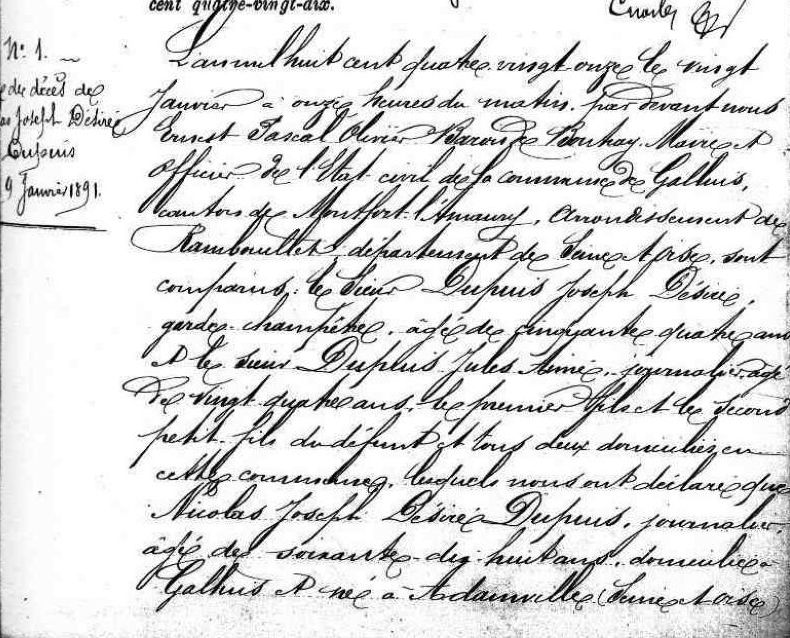 cent quatre-vingt-dix.
N° 1.
de décès de
as Joseph Désiré
Dupuis
9 Janvier 1891.
L'an mil huit cent quatre vingt onze le vingt
Janvier à onze heures du matin, par devant nous
Ernest Pascal Olivier Maire et
Officier de l'Etat civil de la commune de Galluis,
canton de Montfort-l'Amaury, arrondissement de
Rambouillet, département de Seine et Oise, sont
comparus: le sieur Dupuis Joseph Désiré,
garde-champêtre, âgé de cinquante quatre ans
et le sieur Dupuis Jules Aimé, journalier, âgé
de vingt quatre ans, le premier fils et le second
petit-fils du défunt et tous deux domiciliés en
cette commune, lesquels nous ont déclaré que
Nicolas Joseph Désiré Dupuis, journalier,
âgé de soixante-dix huit ans, domicilié à
Galluis et né à Adainville (Seine et Oise)